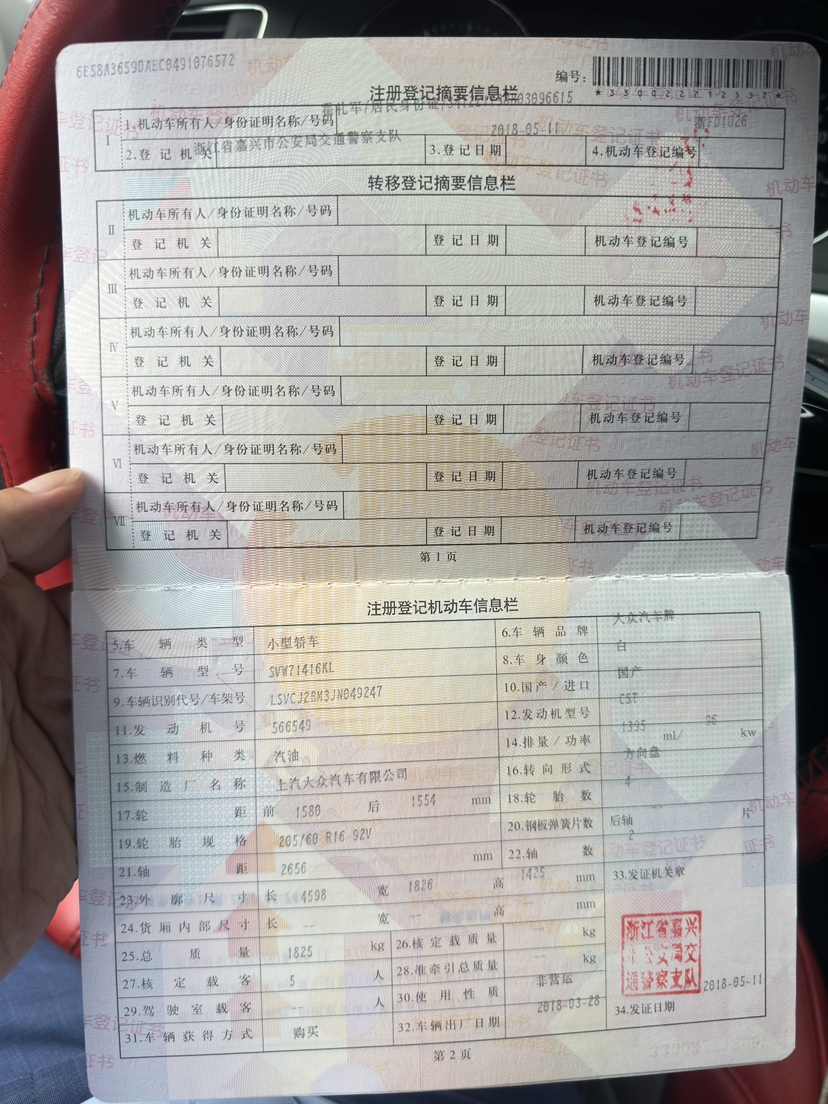 6E58A3659DAEC0491076572
编号:
注册登记摘要信息栏
I
1.机动车所有人/身份证明名称/号码
2.登记机关
浙江省嘉兴市公安局交通警察支队
3.登记日期
2018-05-11
4.机动车登记编号
转移登记摘要信息栏
II
机动车所有人/身份证明名称/号码
登记机关 登记日期 机动车登记编号
III
机动车所有人/身份证明名称/号码
登记机关 登记日期 机动车登记编号
IV
机动车所有人/身份证明名称/号码
登记机关 登记日期 机动车登记编号
V
机动车所有人/身份证明名称/号码
登记机关 登记日期 机动车登记编号
VI
机动车所有人/身份证明名称/号码
登记机关 登记日期 机动车登记编号
VII
机动车所有人/身份证明名称/号码
登记机关 登记日期 机动车登记编号
第1页
注册登记机动车信息栏
5.车辆类型 小型轿车 6.车辆品牌 大众汽车牌
7.车辆型号 SVW71416KL 8.车身颜色 白
9.车辆识别代号/车架号 LSVCJ2BM3JN049247 10.国产/进口 国产
11.发动机号 566549 12.发动机型号 CST
13.燃料种类 汽油 14.排量/功率 1395 ml/ 96 kw
15.制造厂名称 上汽大众汽车有限公司 16.转向形式 方向盘
17.轮距 前 1580 后 1554 mm 18.轮胎数 4
19.轮胎规格 205/60 R16 92V 20.钢板弹簧片数 后轴 -- 片
21.轴距 2656 mm 22.轴数 2
23.外廓尺寸 长 4598 宽 1826 高 1425 mm 33.发证机关章
24.货厢内部尺寸 长 -- 宽 -- 高 -- mm
25.总质量 1825 kg 26.核定载质量 -- kg
27.核定载客 5 人 28.准牵引总质量 -- kg
29.驾驶室载客 -- 人 30.使用性质 非营运
31.车辆获得方式 购买 32.车辆出厂日期 2018-03-28 34.发证日期 2018-05-11
浙江省嘉兴
市公安局交
通警察支队
第2页